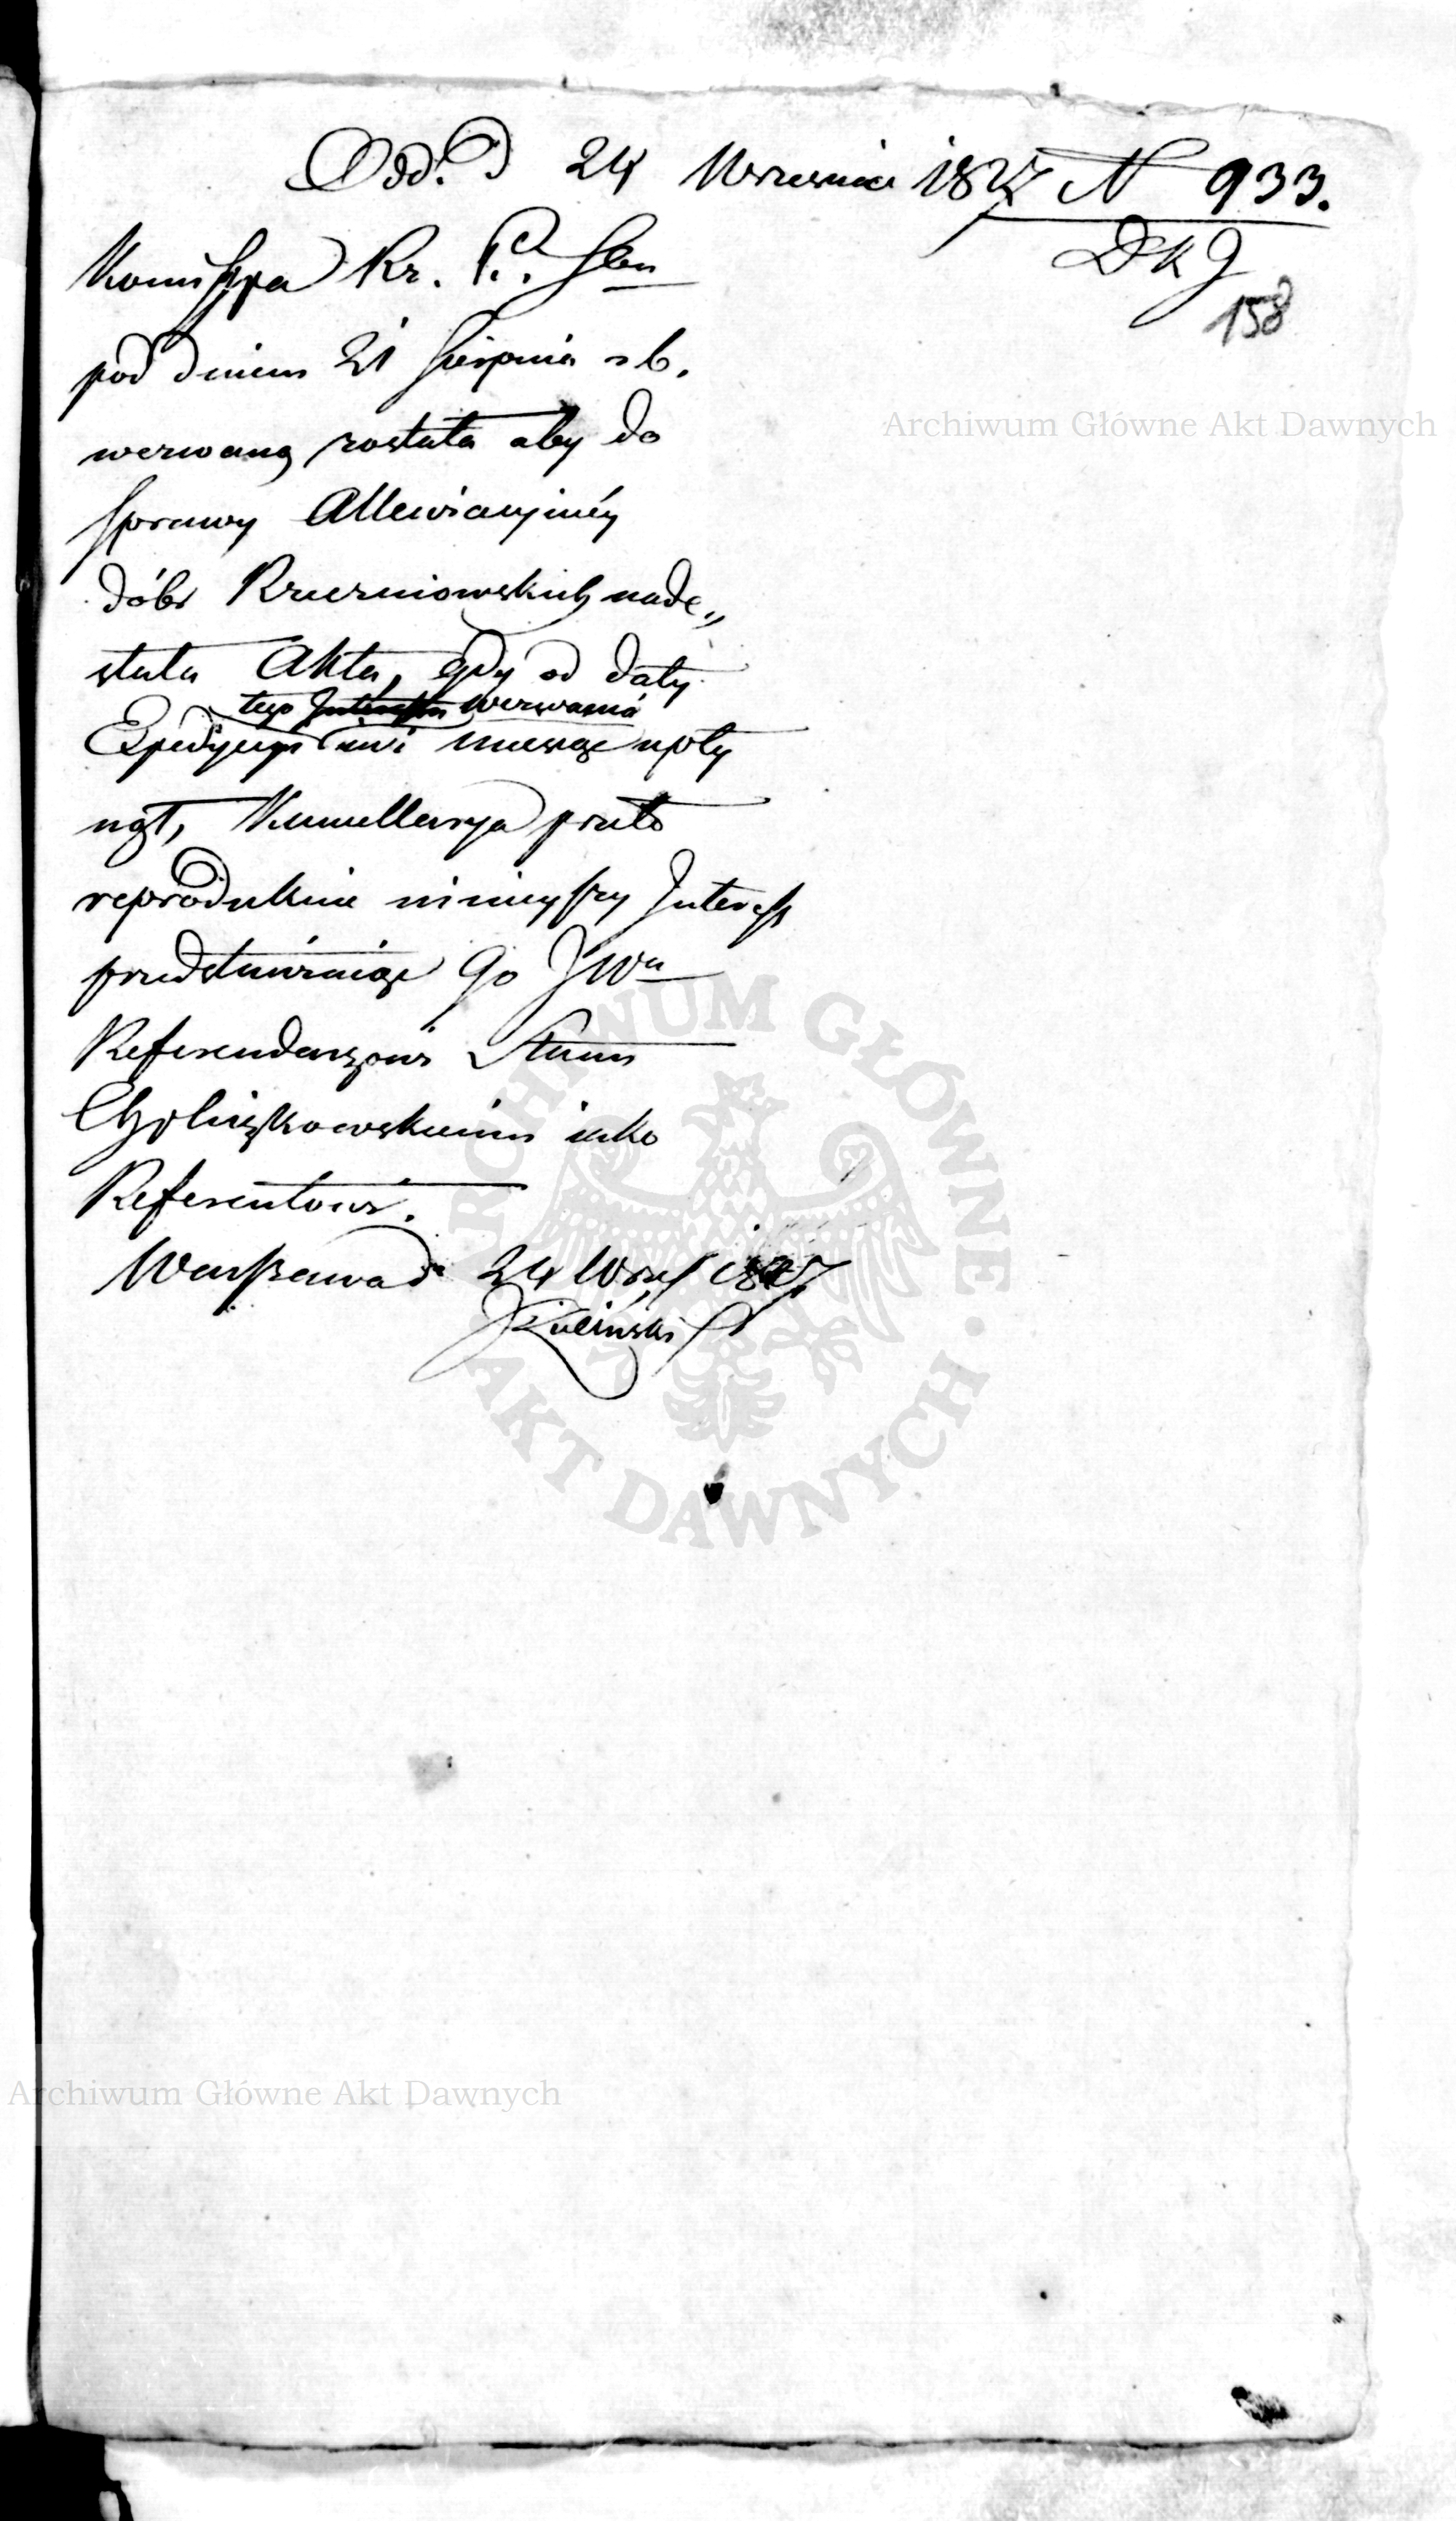 Odd. D 24 Wrzesnia 1827 N 933.
DKJ
158
Kommissya Kr. P. Sbu
pod dniem 21 Sierpnia r b.
wezwaną została aby do
sprawy Allewiacyinéy
dóbr Krzerniowskich nade„
słała Akta, gdy od daty
tego Interessu wezwania
Expedycyi mi miesiąc upły
nął, Kancellarya przeto
reprodukuie ninieyszy Interess
przedstawiaiąc go JWu
Referendarzowi Stanu
Chyliczkowskiemu iako
Referentowi.
Warszawa d. 24 Wrześ 1827
JKiliński
Archiwum Główne Akt Dawnych
ARCHIWUM GŁÓWNE AKT DAWNYCH
Archiwum Główne Akt Dawnych